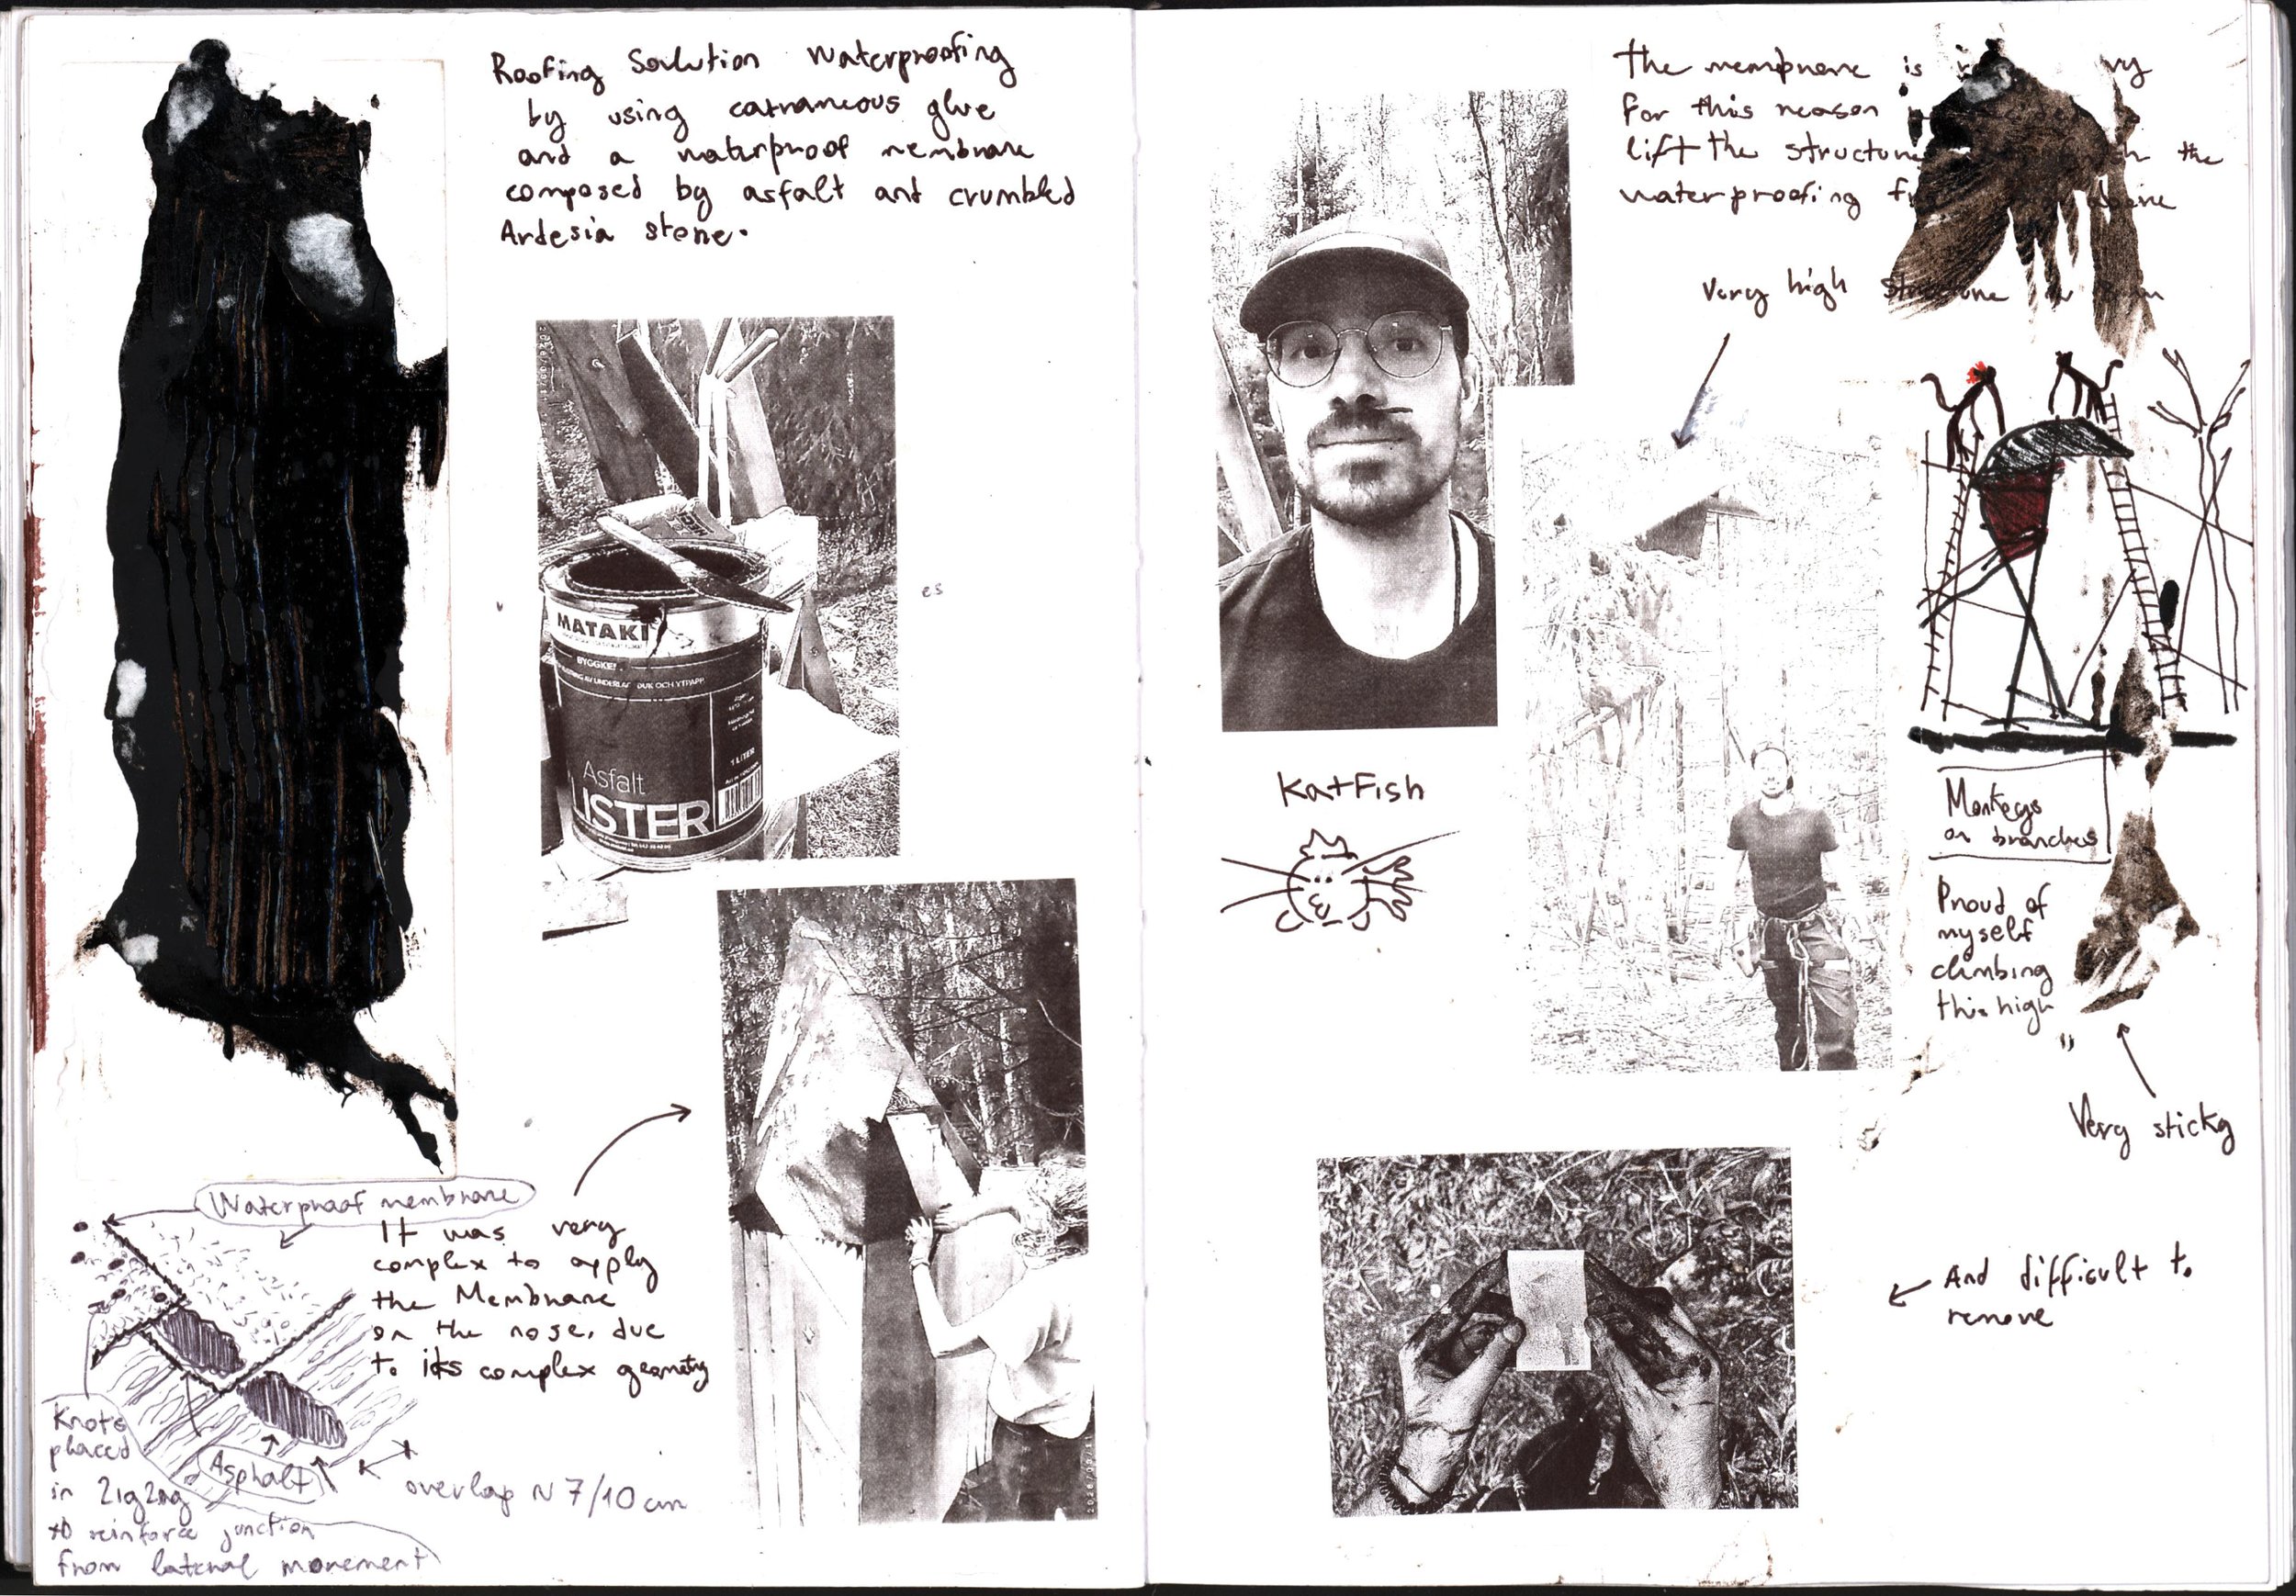 Roofing Soulution Waterproofing
by using catrameous glue
and a waterproof membrane
composed by asfalt and crumbled
Ardesia stone.
MATAKI
BYGGKEMI
DUK OCH YTPAPP
1 LITER
Asfalt
LISTER
es
Waterproof membrane
It was very
complex to apply
the Membrane
on the nose, due
to its complex geometry
Knots
placed
in zigzag
to reinforce junction
from lateral movement
Asphalt
overlap ~ 7/10 cm
The membrane is
For this reason
lift the structure the
waterproofing
very high structure
KatFish
Monkeys
on branches
Proud of
myself
climbing
this high
Very sticky
And difficult to
remove